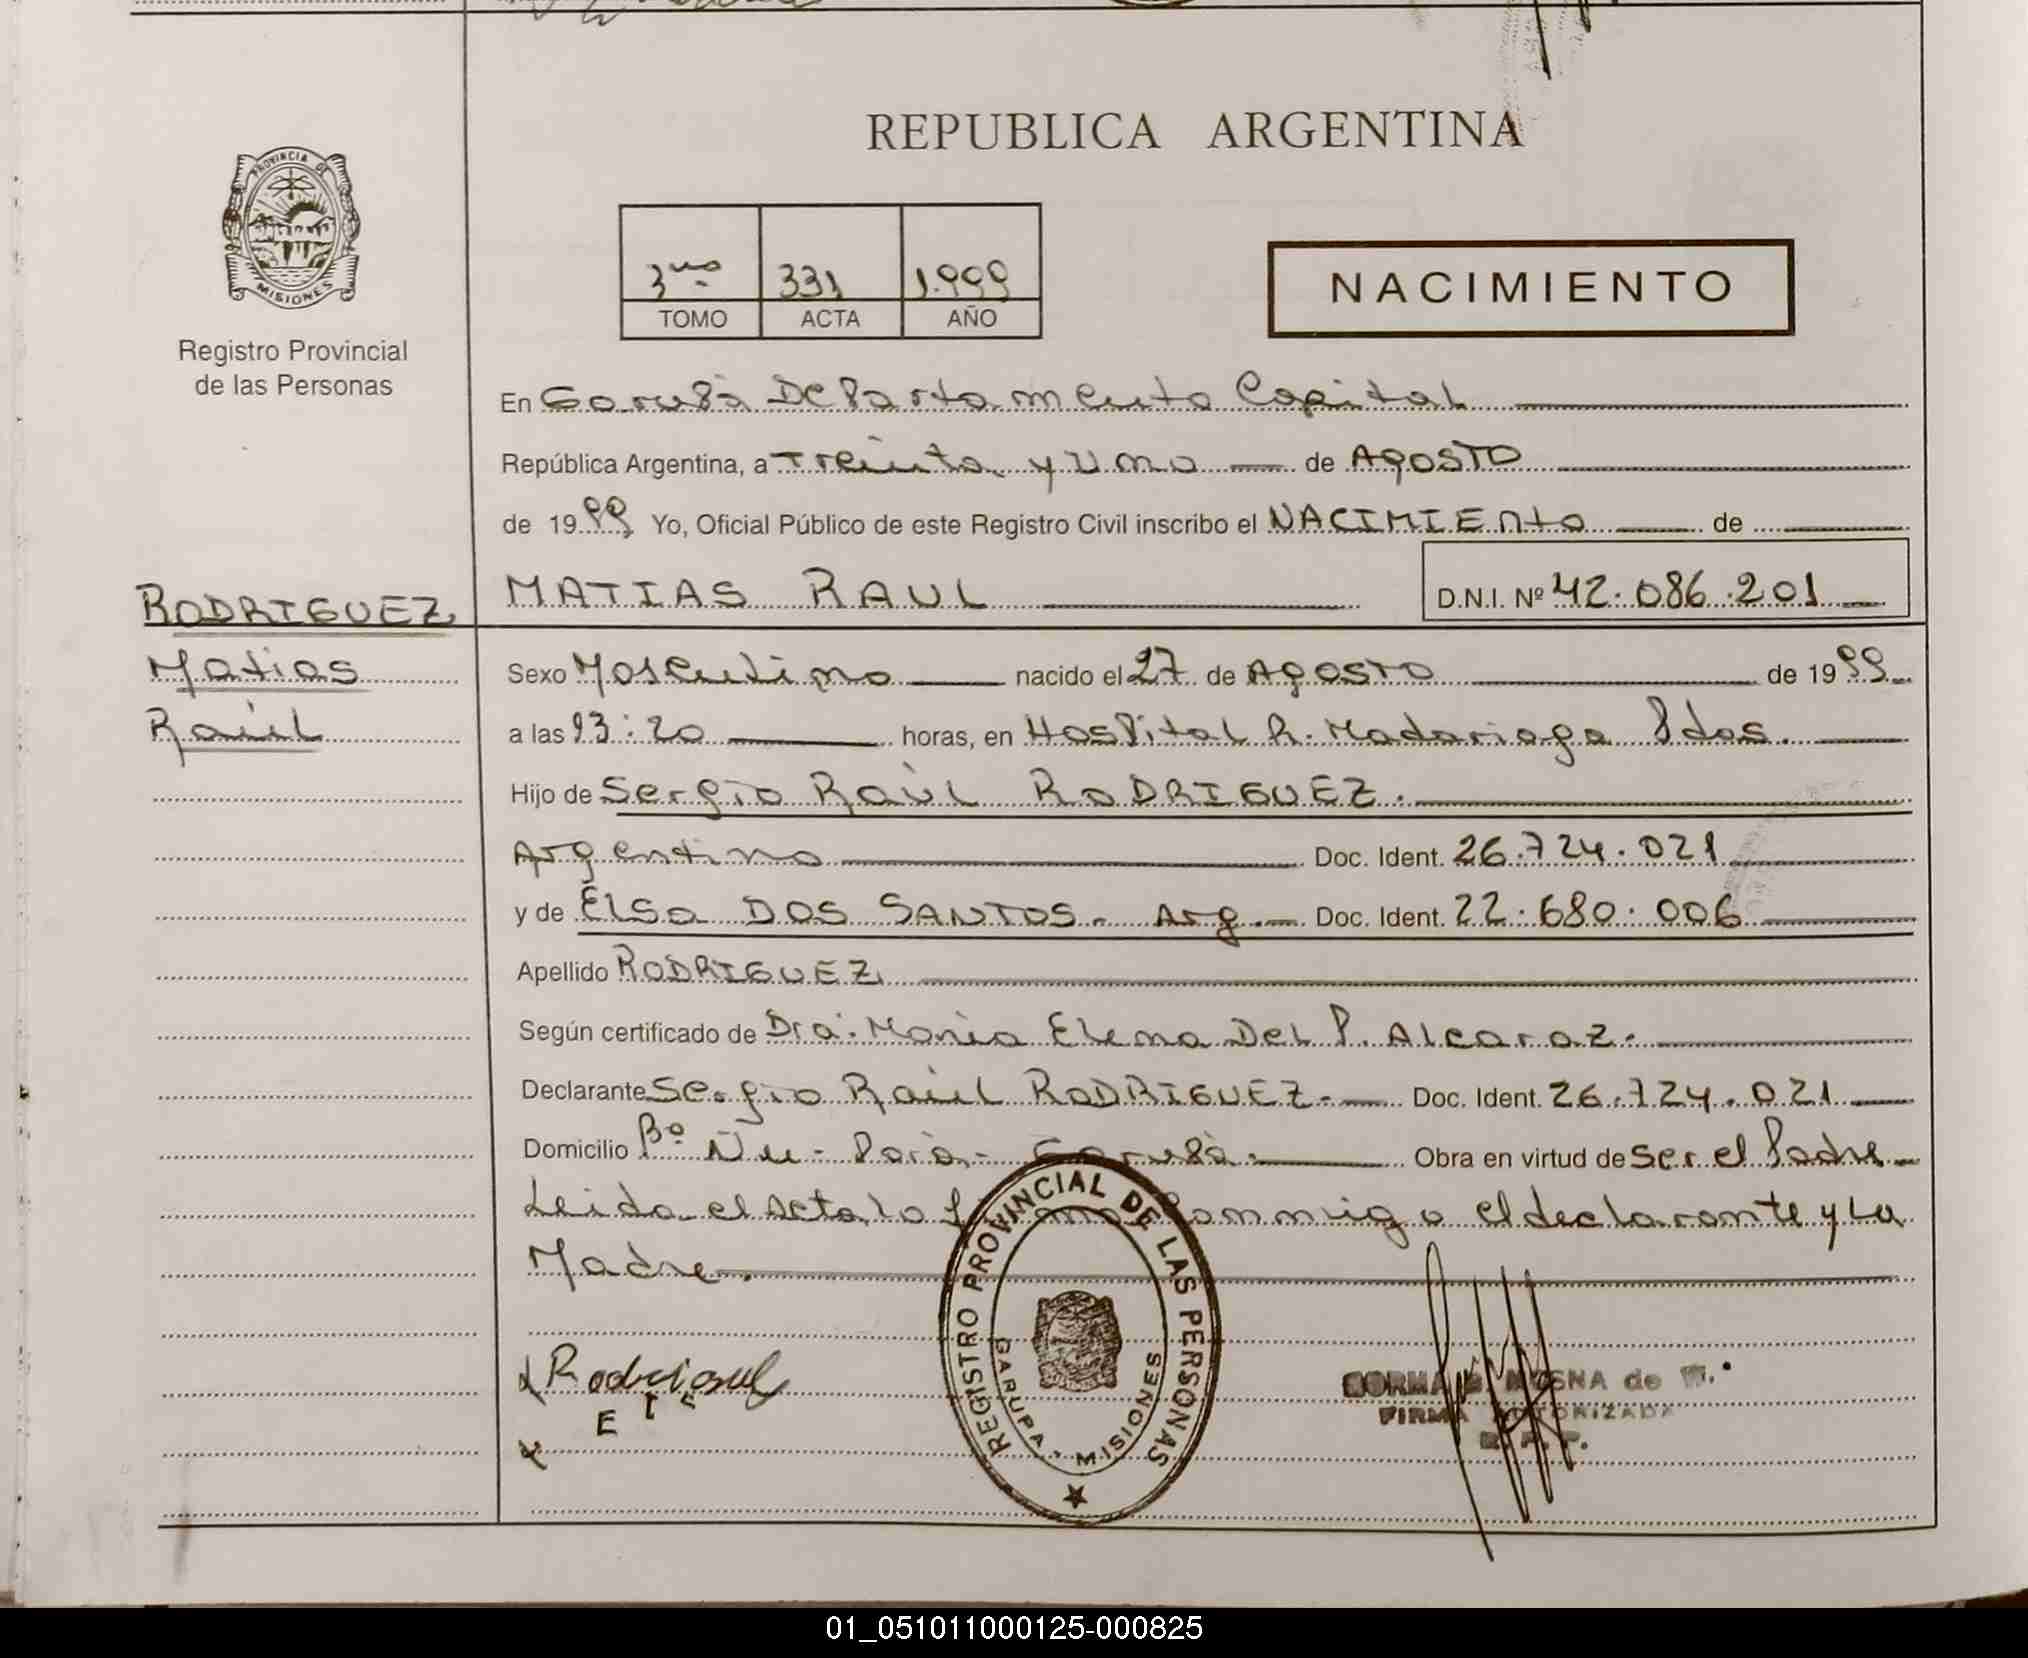 PROVINCIA DE
MISIONES
Registro Provincial
de las Personas
REPUBLICA ARGENTINA
3ro 331 1.999
TOMO ACTA AÑO
NACIMIENTO
En Garupá Departamento Capital
República Argentina, a Treinta y Uno de AGOSTO
de 1999 Yo, Oficial Público de este Registro Civil inscribo el NACIMIENTO de
MATIAS RAUL D.N.I. Nº 42.086.201
RODRIGUEZ
Matias
Raúl
Sexo Masculino nacido el 27 de AGOSTO de 1999
a las 13:20 horas, en Hospital R. Madariaga Pdas.
Hijo de Sergio Raúl RODRIGUEZ.
Argentino Doc. Ident. 26.724.021
y de Elsa DOS SANTOS. Arg. Doc. Ident. 22.680.006
Apellido RODRIGUEZ
Según certificado de Dra. María Elena Del P. Alcaraz.
Declarante Sergio Raúl RODRIGUEZ. Doc. Ident. 26.724.021
Domicilio Bº Ñu-Porá- Garupá. Obra en virtud de ser el Padre
Leida el Acta la conmigo el declarante y La
Madre.
REGISTRO PROVINCIAL DE LAS PERSONAS
GARUPA - MISIONES
NORMA de
FIRMA AUTORIZADA
R. P. P.
01_051011000125-000825